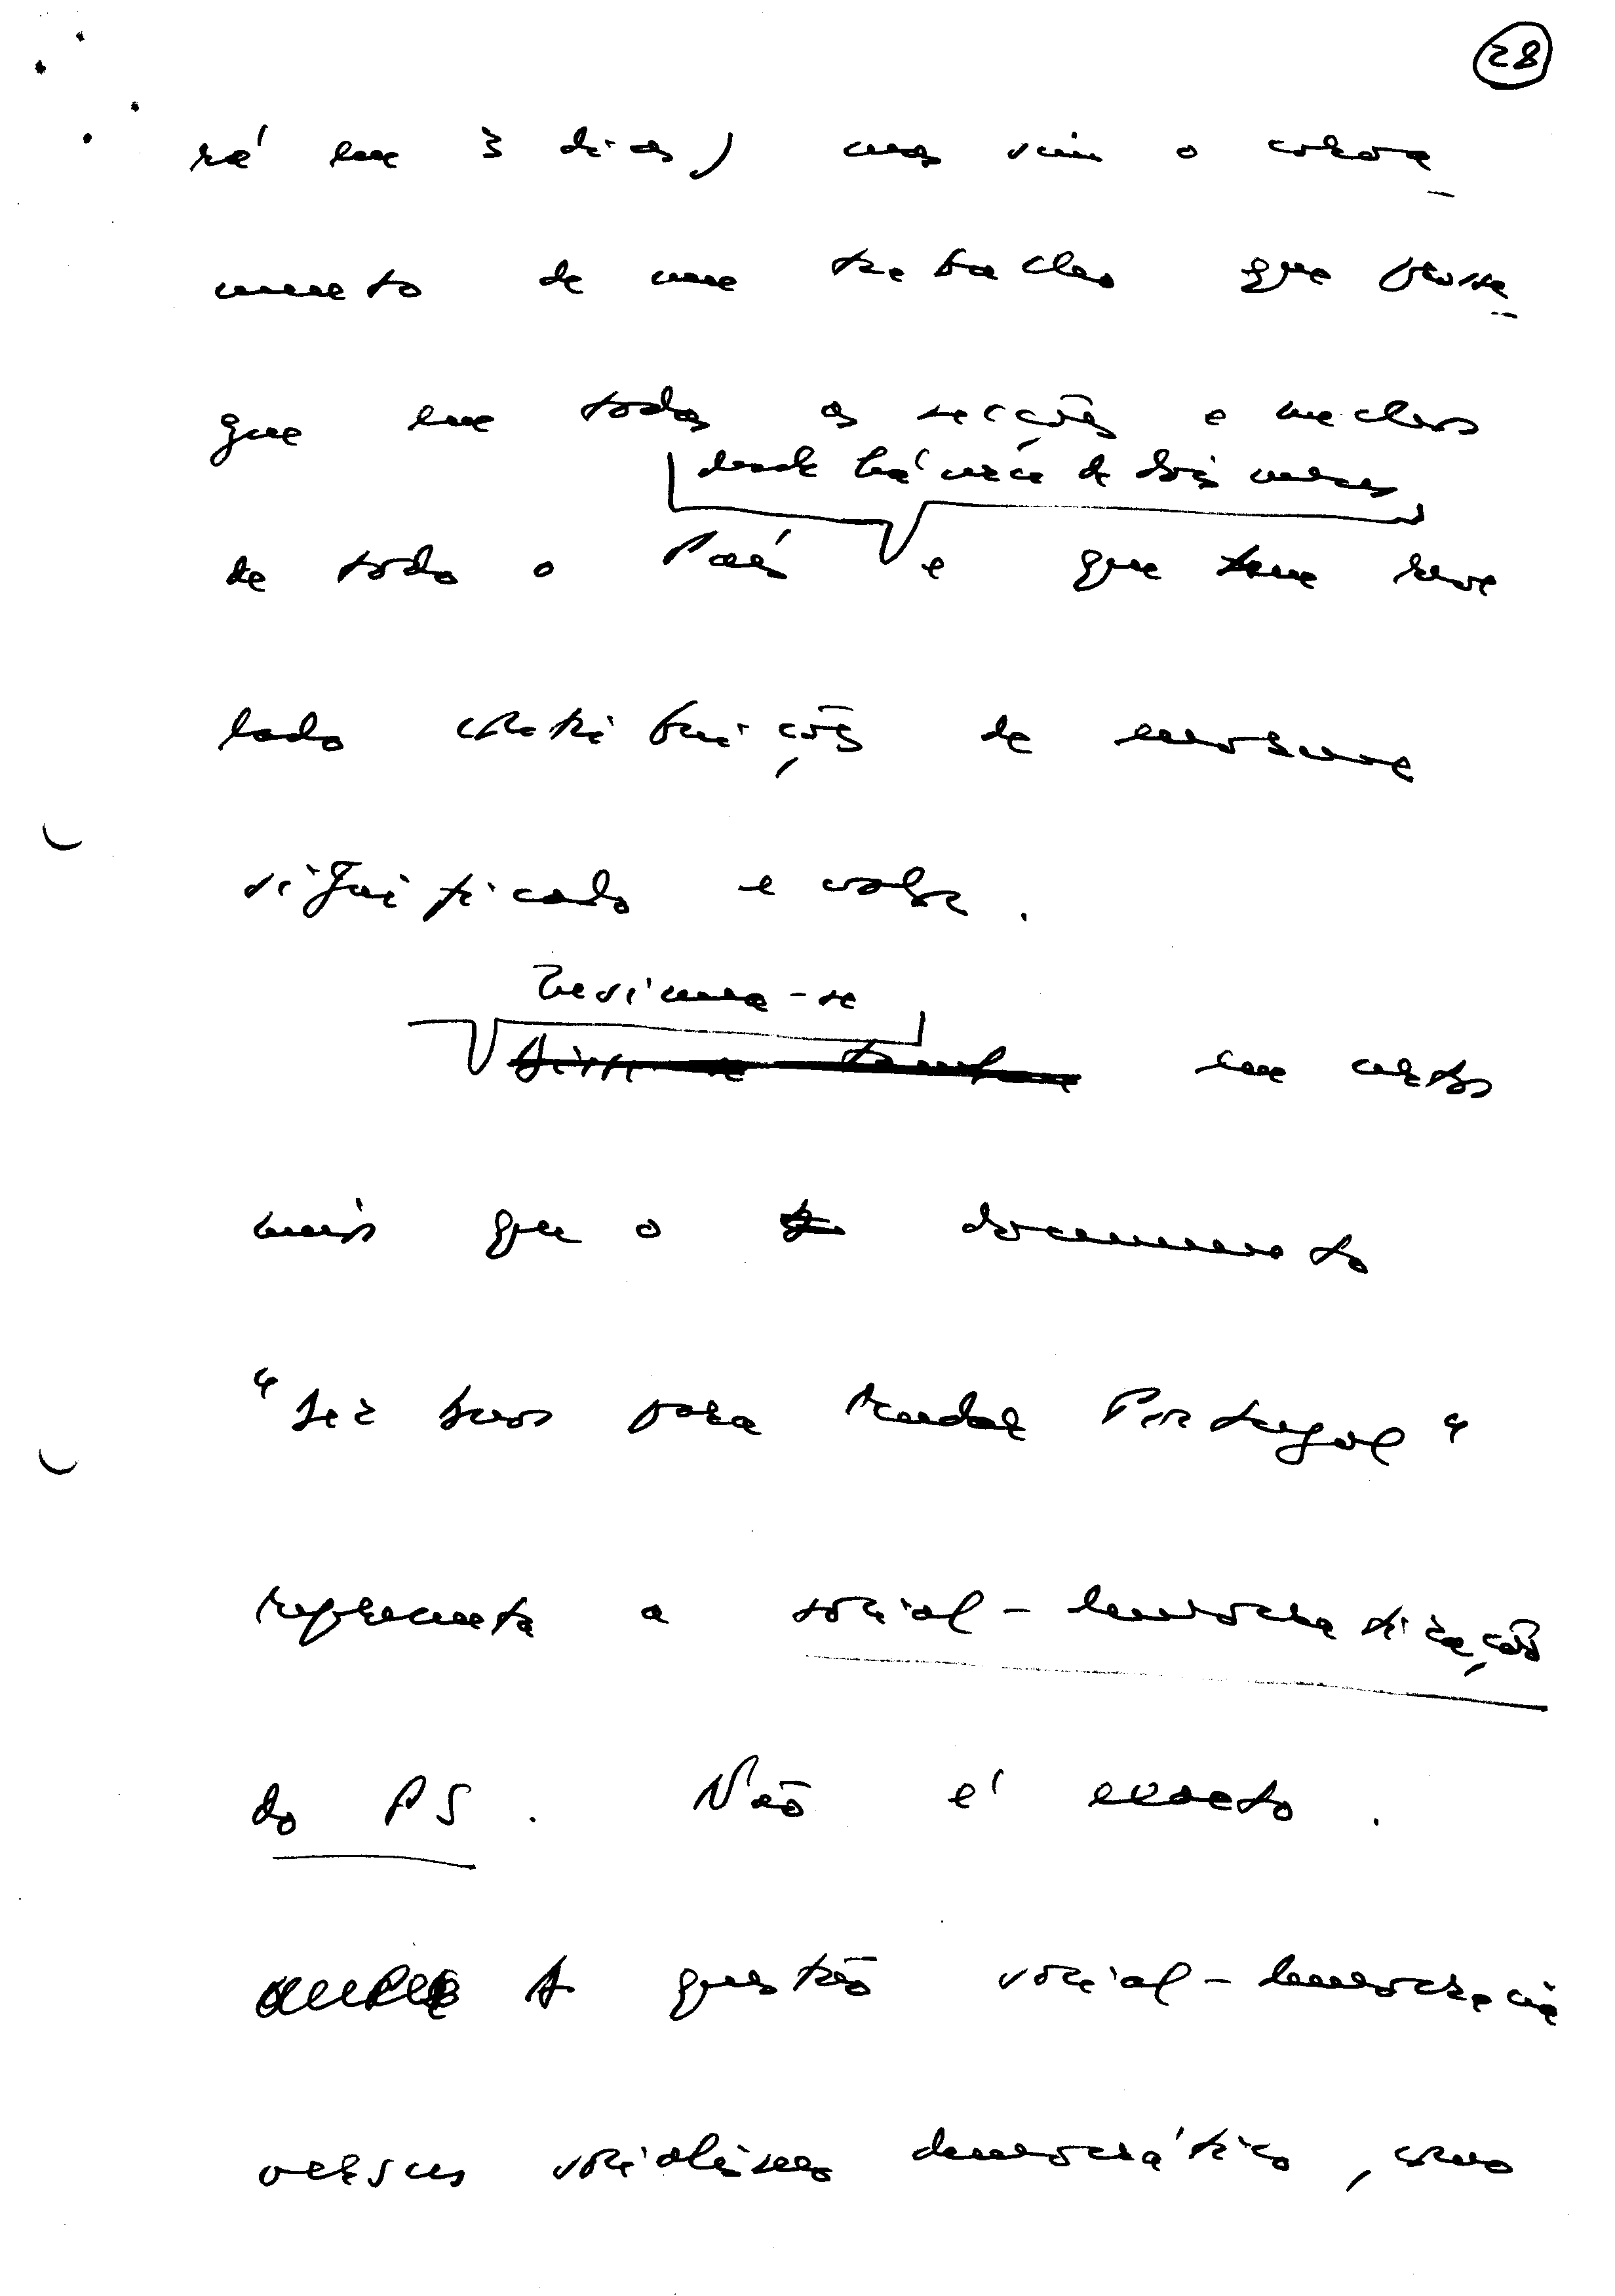 28
rá em 3 dias) mas sim o coroa_
mento de um trabalho que prosse_
gue em todas as secções e núcleos
desde há cerca de dois meses
de todo o País e que tem reve
lado contribuições de enorme
significado e valor.
Insinua-se
em certos
meios que o documento
"Dez anos para mudar Portugal"
representa a social-democratização
do PS. Não é exacto.
A questão social-democracia
versus socialismo democrático, como